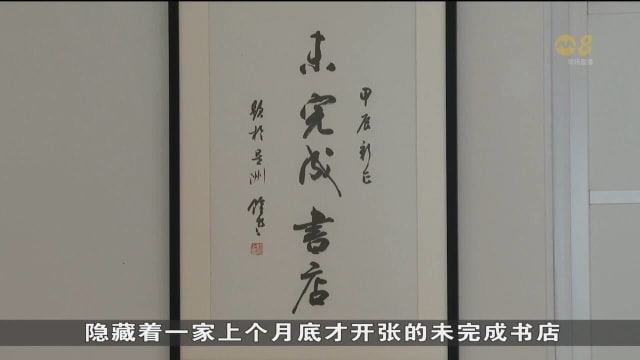 未完成書店
甲辰新正
題於星洲
8
隐藏着一家上个月底才开张的未完成书店